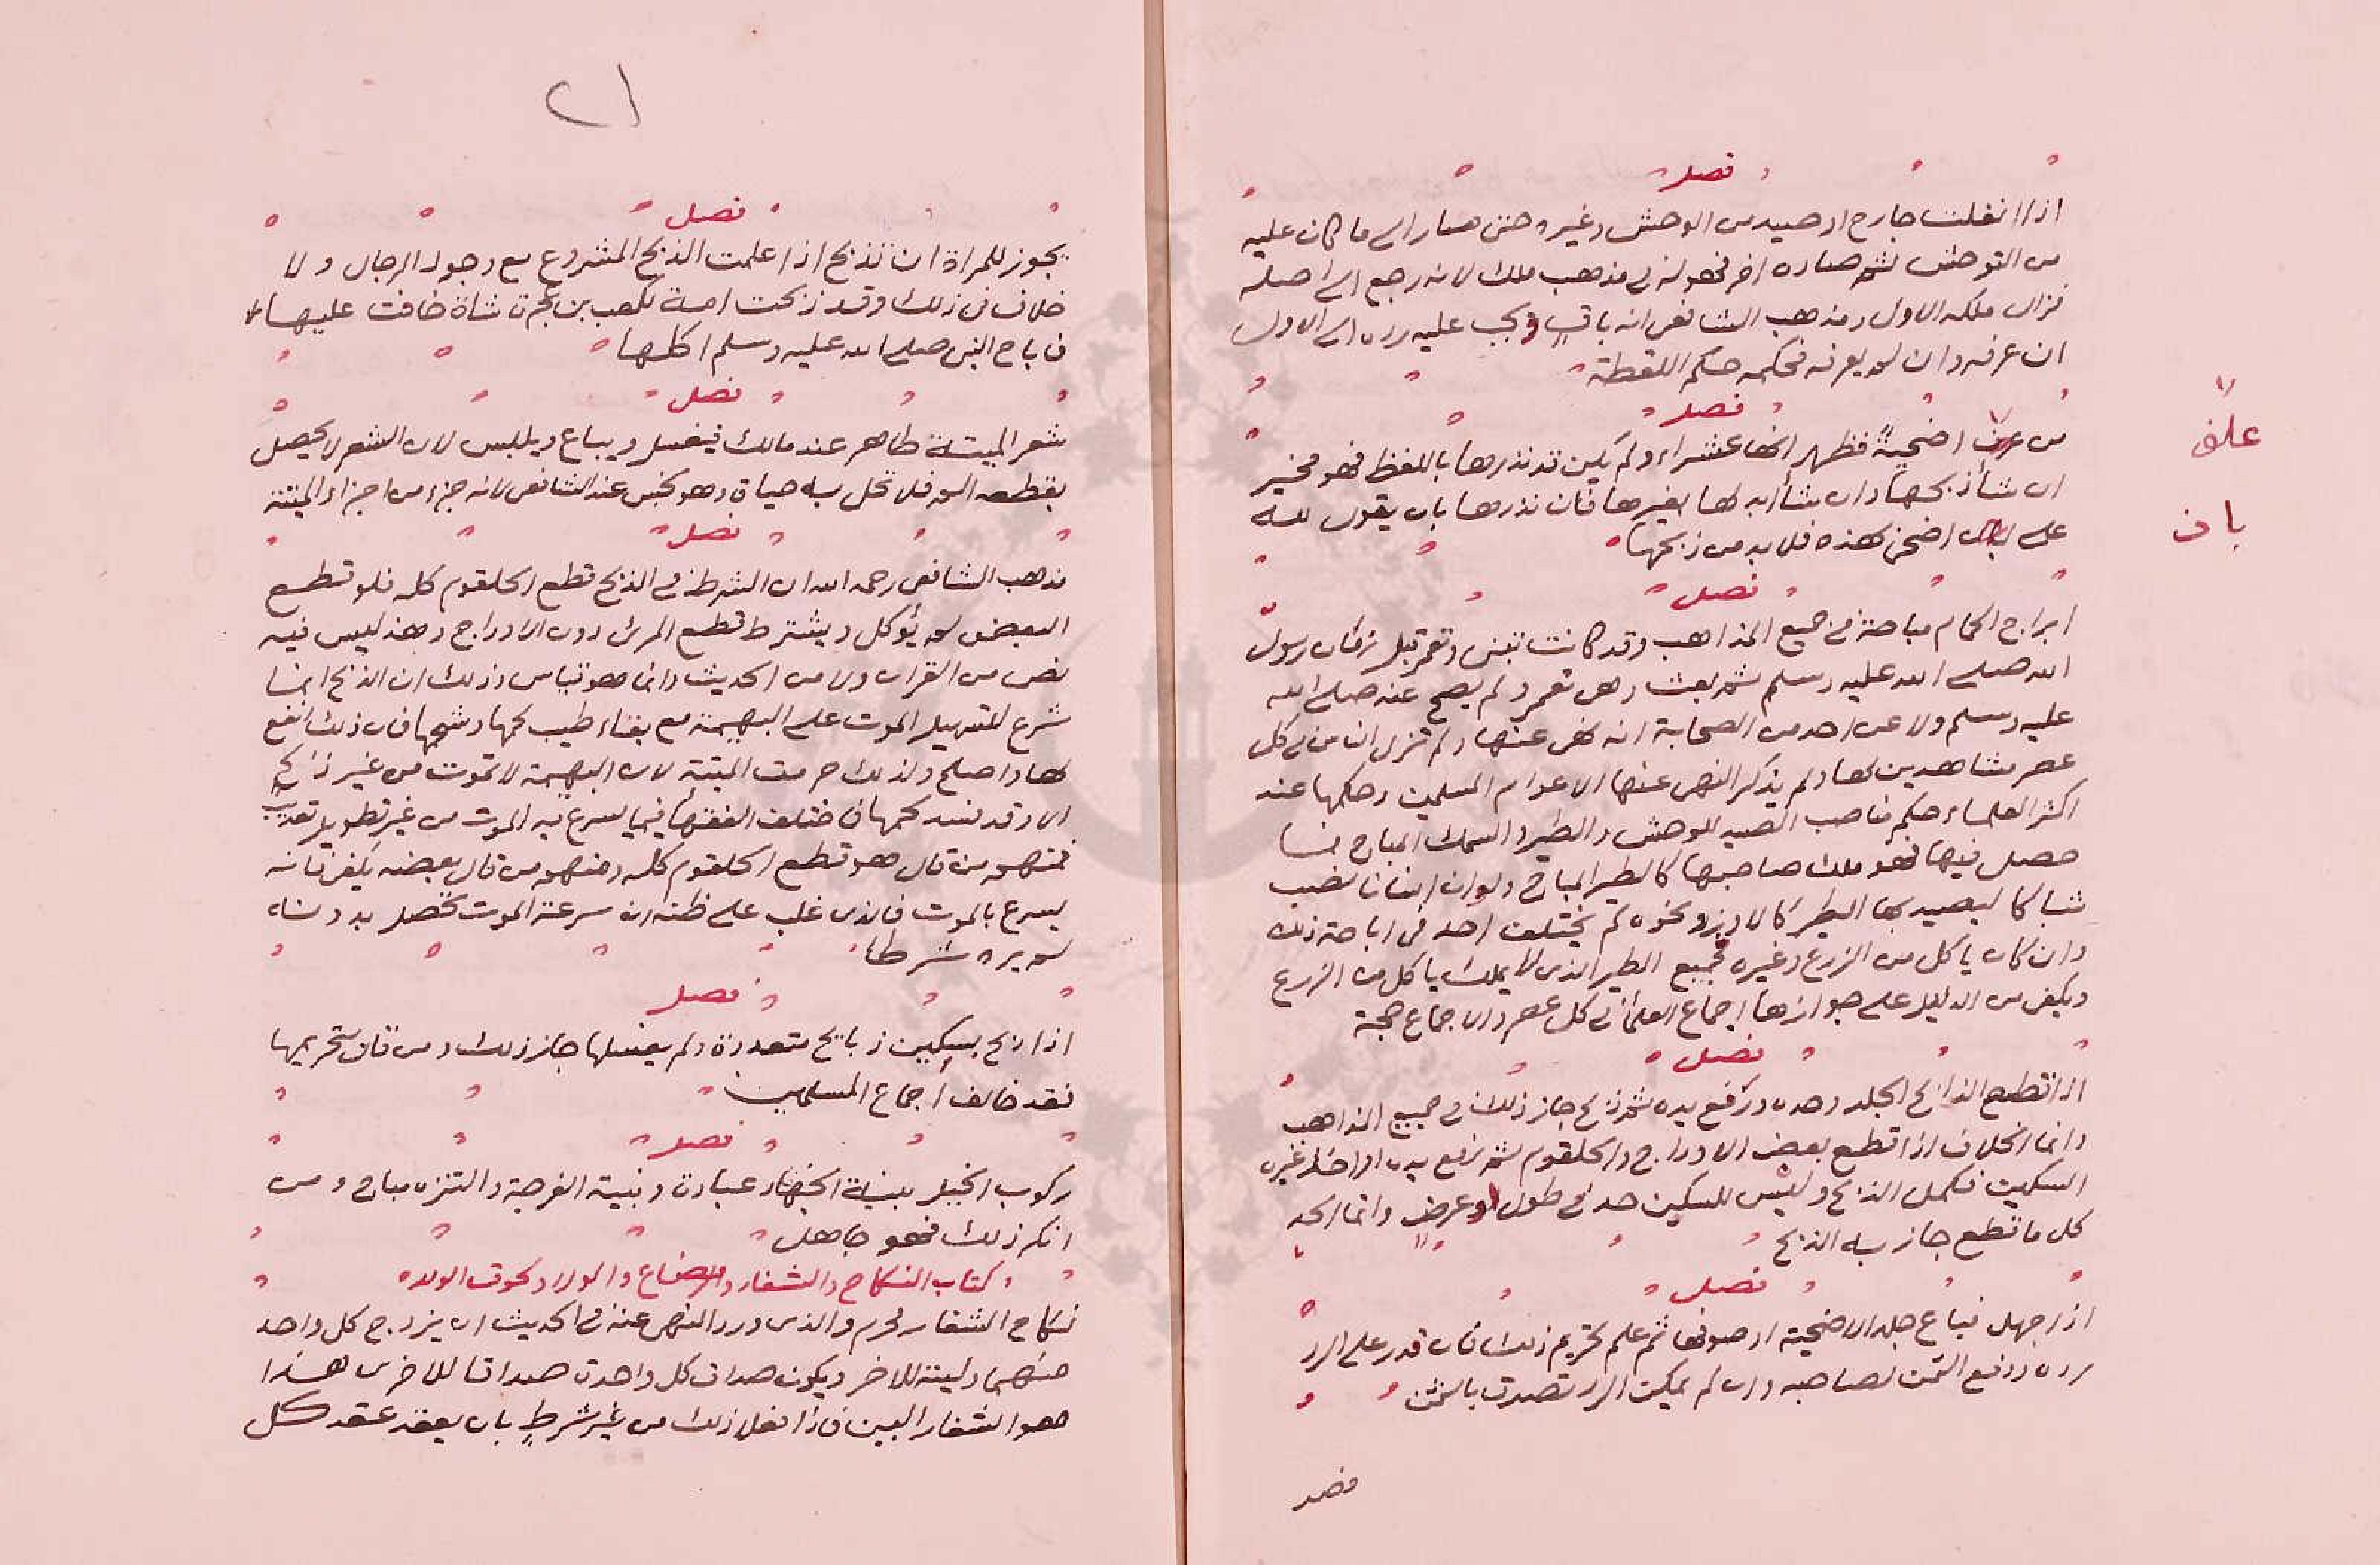 فصل
اذا انفلت جارح او صيد من الوحش وغيره حتى صار الى ما كان عليه
من التوحش ثم صاده اخر فهو له في مذهب ملك لانه رجع الى اصله
فزال ملكه الاول ومذهب الشافعى انه باقٍ ويجب عليه رده الى الاول
ان عرفه وان لم يعرفه فحكمه حكم اللقطة
فصل
من اضحيةً فظهر انها عشراء ولم يكن قد نذرها باللفظ فهو مخير
ان شاء ذبحها وان شاء ابدلها بغيرها فان نذرها بان يقول لله
على اضحى بهذه فلا بد من ذبحها
علّف
بان
فصل
ابراج الحمام مباحة في جميع المذاهب وقد كانت تبنى وتعمر قبل زمان رسول
الله صلى الله عليه وسلم ثم بعث وهى تعمر ولم يصح عنه صلى الله
عليه وسلم ولا عن احد من الصحابة انه نهى عنها ولم تزل الناس في كل
عصر مشاهدين لها ولم يذكر النهى عنها الا عوام المسلمين وحكمها عند
اكثر العلماء حكم مناصب الصيد للوحش والطير والسمك المباح فما
حصل فيها فهو ملك صاحبها كالطير المباح ولو ان انسانا نصب
شباكا ليصيد بها الطير كالاوز ونحوه لم يختلف احد فى اباحة ذلك
وان كان ياكل من الزرع وغيره فجميع الطير الذى لا يملك ياكل من الزرع
ويكفى من الدليل على جوازها اجماع العلماء في كل عصر والاجماع حجة
فصل
اذا قطع الذابح الجلد وحده ورفع يده ثم ذبح جاز ذلك في جميع المذاهب
وانما الخلاف اذا قطع بعض الاوداج والحلقوم ثم رفع يده او اخذ غيره
السكين فكمل الذبح وليس للسكين حد في طول او عرضٍ وانما الحد
كل ما قطع جاز به الذبح
فصل
اذا جهل فباع جلد الاضحية او صوفها ثم علم تحريم ذلك فان قدر على الرد
رده ودفع الثمن لصاحبه وان لم يمكن الرد تصدق بالثمن
فصل
٢١
فصل
يجوز للمراة ان تذبح اذا علمت الذبح المشروع مع وجود الرجال ولا
خلاف فى ذلك وقد ذبحت امة لكعب بن عجرة شاة خافت عليها
فاباح النبى صلى الله عليه وسلم اكلها
فصل
شعر الميتة طاهر عند مالك فيغسل ويباع ويلبس لان الشعر لا يحصل
بقطعه الم فلا تحل به حياة وهو نجس عند الشافعى لانه جزء من اجزاء الميتة
فصل
مذهب الشافعى رحمه الله ان الشرط في الذبح قطع الحلقوم كله فلو قطع
البعض لم يؤكل ويشترط قطع المرئ دون الاوداج وهذ ليس فيه
نص من القران ولا من الحديث وانما هو قياس وذلك ان الذبح انما
شرع للتسهيل الموت على البهيمة مع بقاء طيب لحمها وشحمها فان ذلك انفع
لها واصلح ولذلك حرمت الميتة لان البهيمة لا تموت من غير ذابح
الا وقد فسد لحمها فاختلف الفقهاء فيما يسرع به الموت من غير تطويل تعذيب
فمنهم من قال هو قطع الحلقوم كله ومنهم من قال بعضه يكفى فانه
يسرع بالموت فالذى غلب على ظنه ان سرعة الموت تحصل بدونه
لم يره شرطا
فصل
اذا ذبح بسكين ذبايح متعددة ولم يغسلها جاز ذلك ومن قال بتحريمها
فقد خالف اجماع المسلمين
فصل
ركوب الخيل بنية الجهاد عبادة وبنية الفرجة والتنزه مباح ومن
انكر ذلك فهو جاهل
كتاب النكاح والشغار والرضاع والولاد ولحوق الولد
نكاح الشغار محرم والذى ورد النهى عنه في الحديث ان يزوج كل واحد
منهما وليته للاخر ويكون صداق كل واحدة صداقا للاخرى هذا
هو الشغار البين فاذا فعل ذلك من غير شرطٍ بان يعقد عقد كل